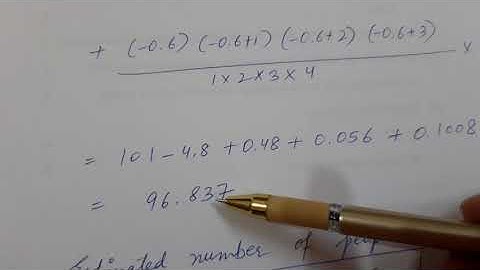 + (-0.6) (-0.6+1) (-0.6+2) (-0.6+3) ×
1×2×3×4
= 101 - 4.8 + 0.48 + 0.056 + 0.1008
= 96.837
Estimated number of